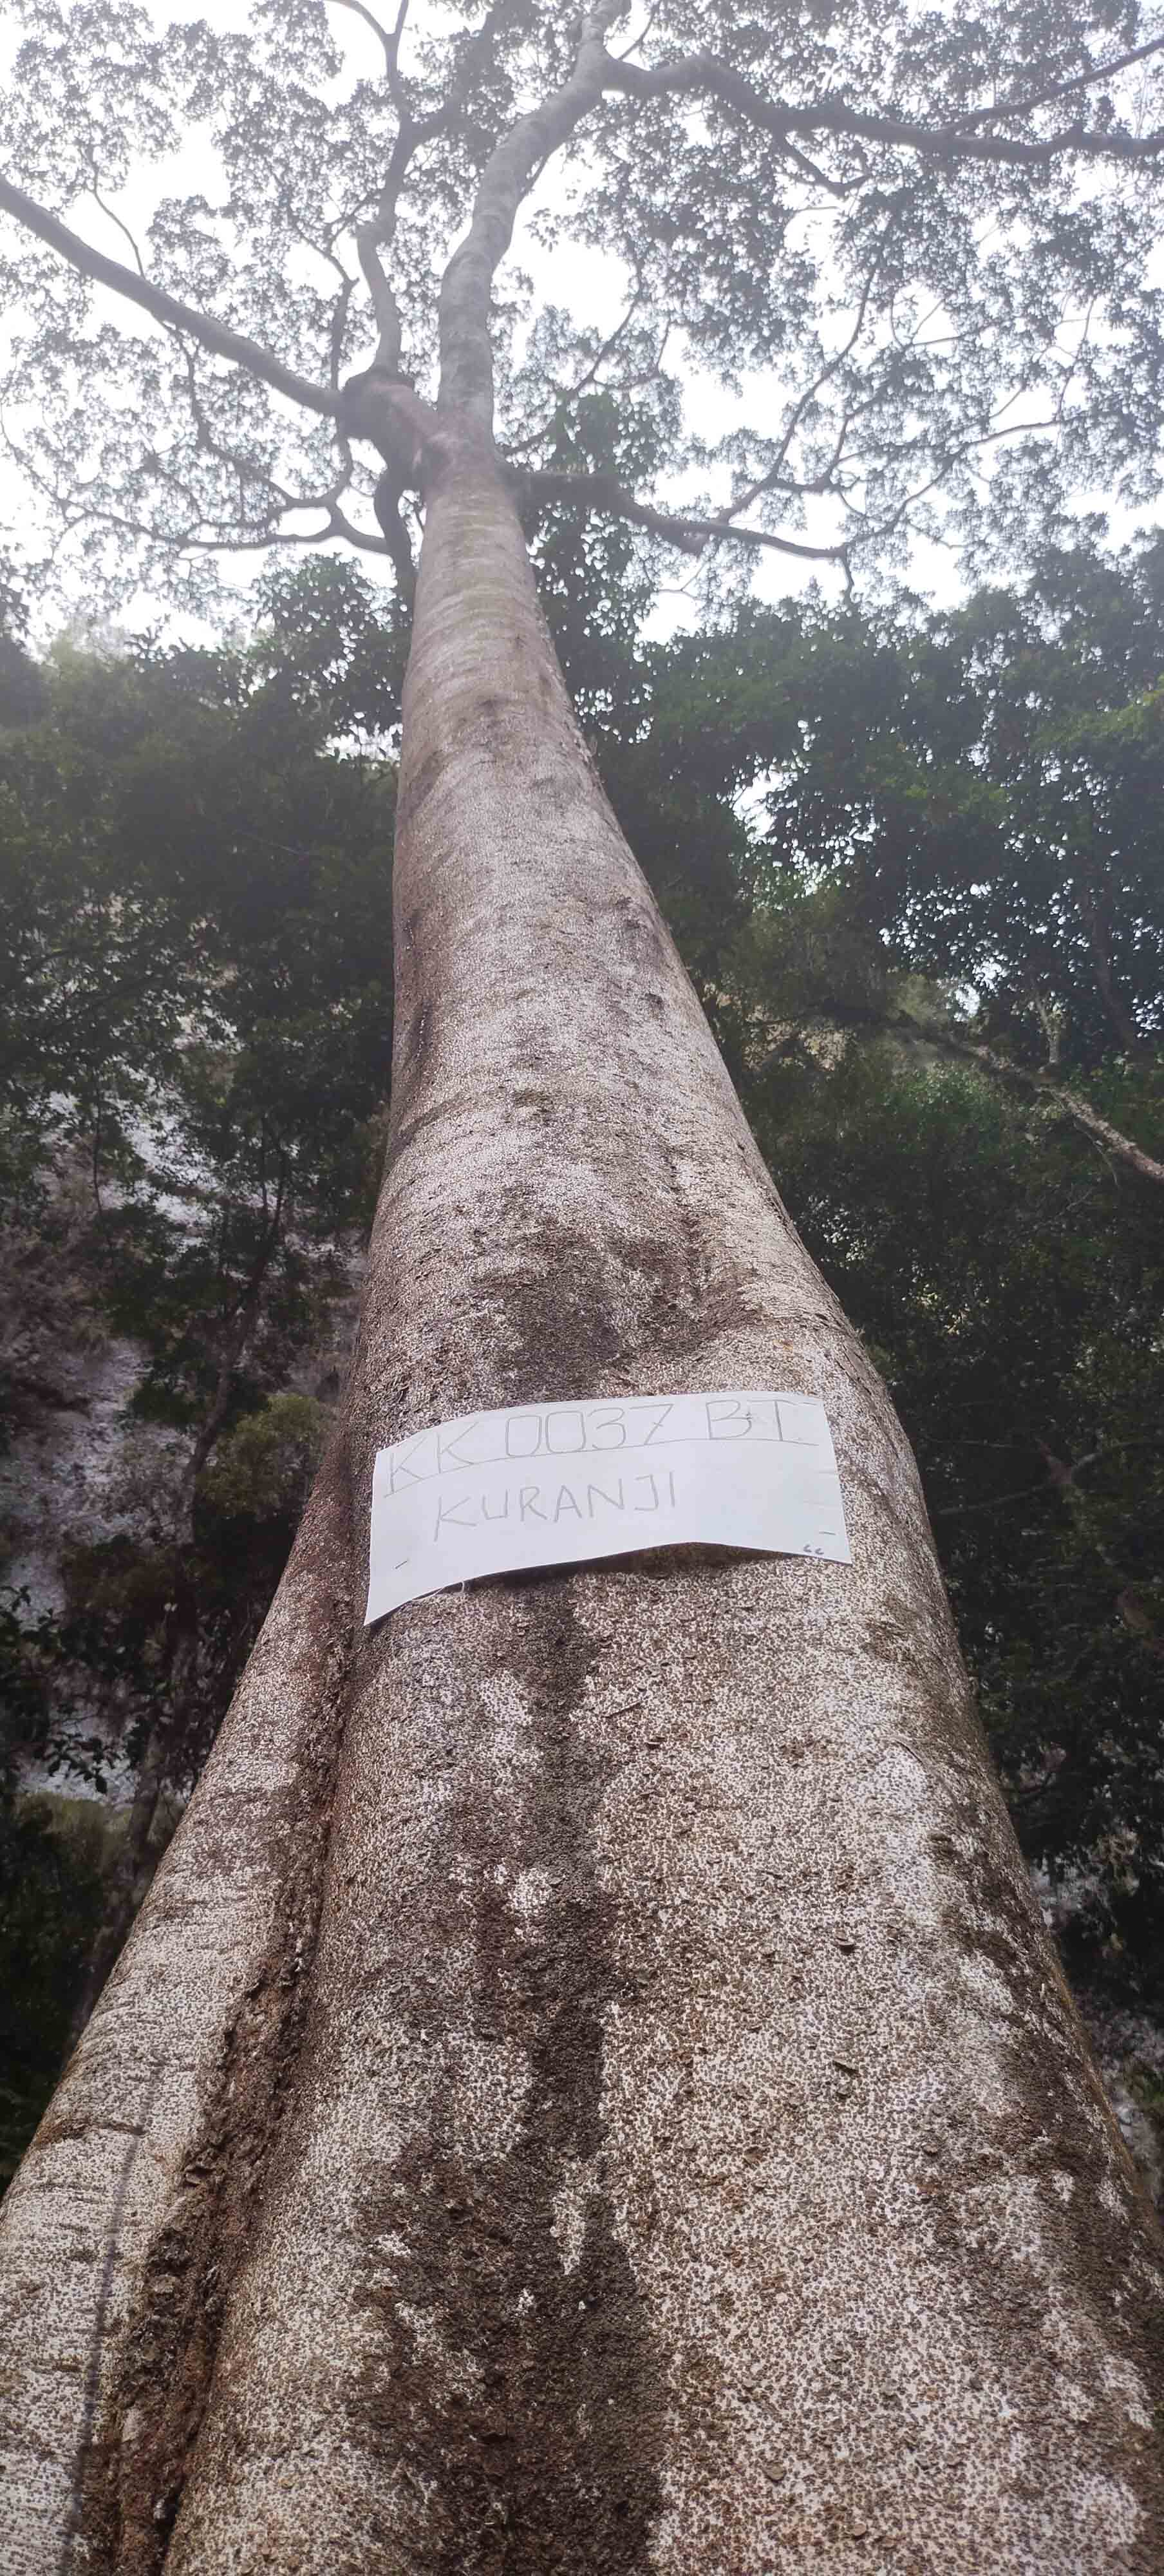 KK 0037 BT
KURANJI